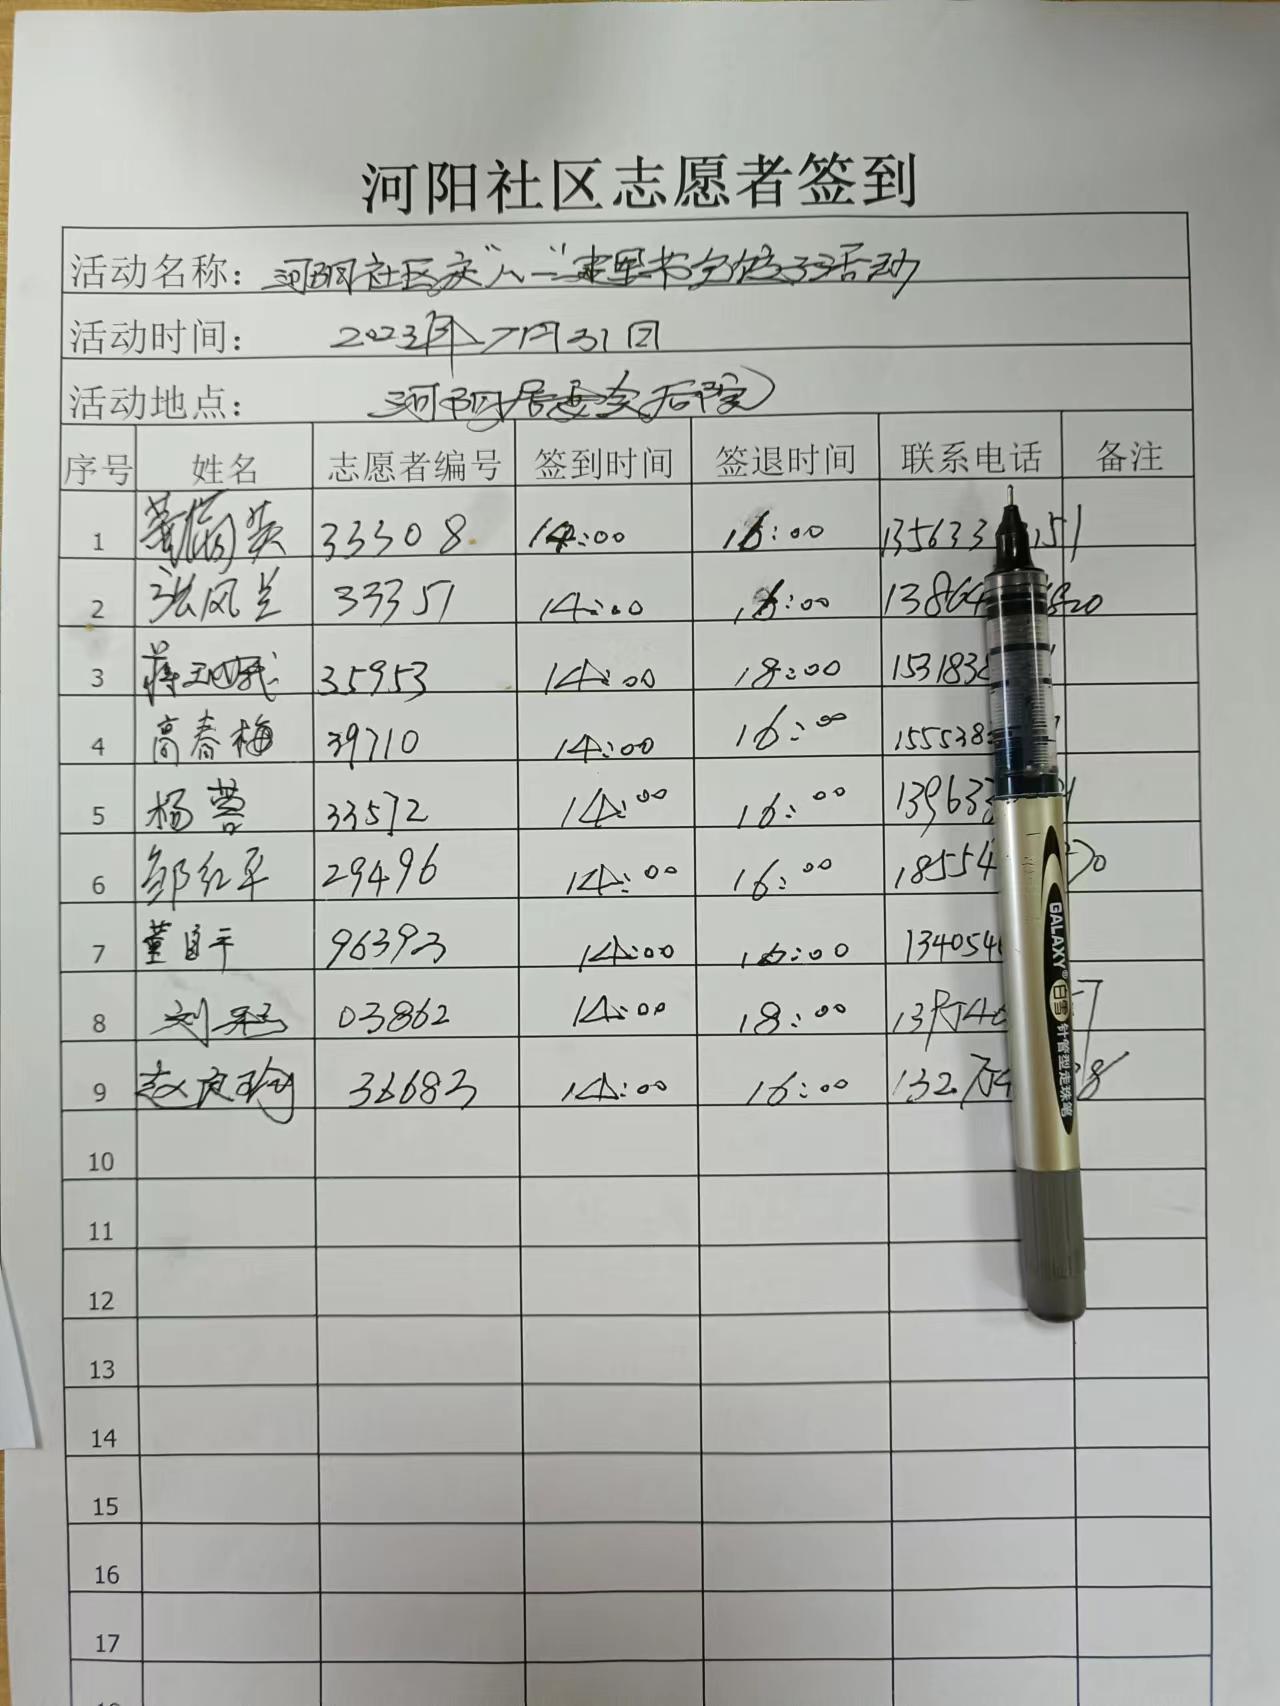 河阳社区志愿者签到
活动名称：河阳社区庆"八一"建军节包饺子活动
活动时间：2023年7月31日
活动地点：河阳居委会后院
序号 姓名 志愿者编号 签到时间 签退时间 联系电话 备注
1 33308 14:00 16:00 135633 151
2 张风兰 33351 14:00 18:00 13864 1820
3 蒋 35953 14:00 18:00 153183
4 高春梅 39710 14:00 16:00 155538
5 杨蓉 33572 14:00 16:00 13963
6 邹红平 29496 14:00 16:00 18554 70
7 董自平 96393 14:00 16:00 134054
8 刘 03862 14:00 18:00 13 7
9 赵庆 36683 14:00 16:00 132 8
10
11
12
13
14
15
16
17
GALAXY® 白雪 针管型走珠笔